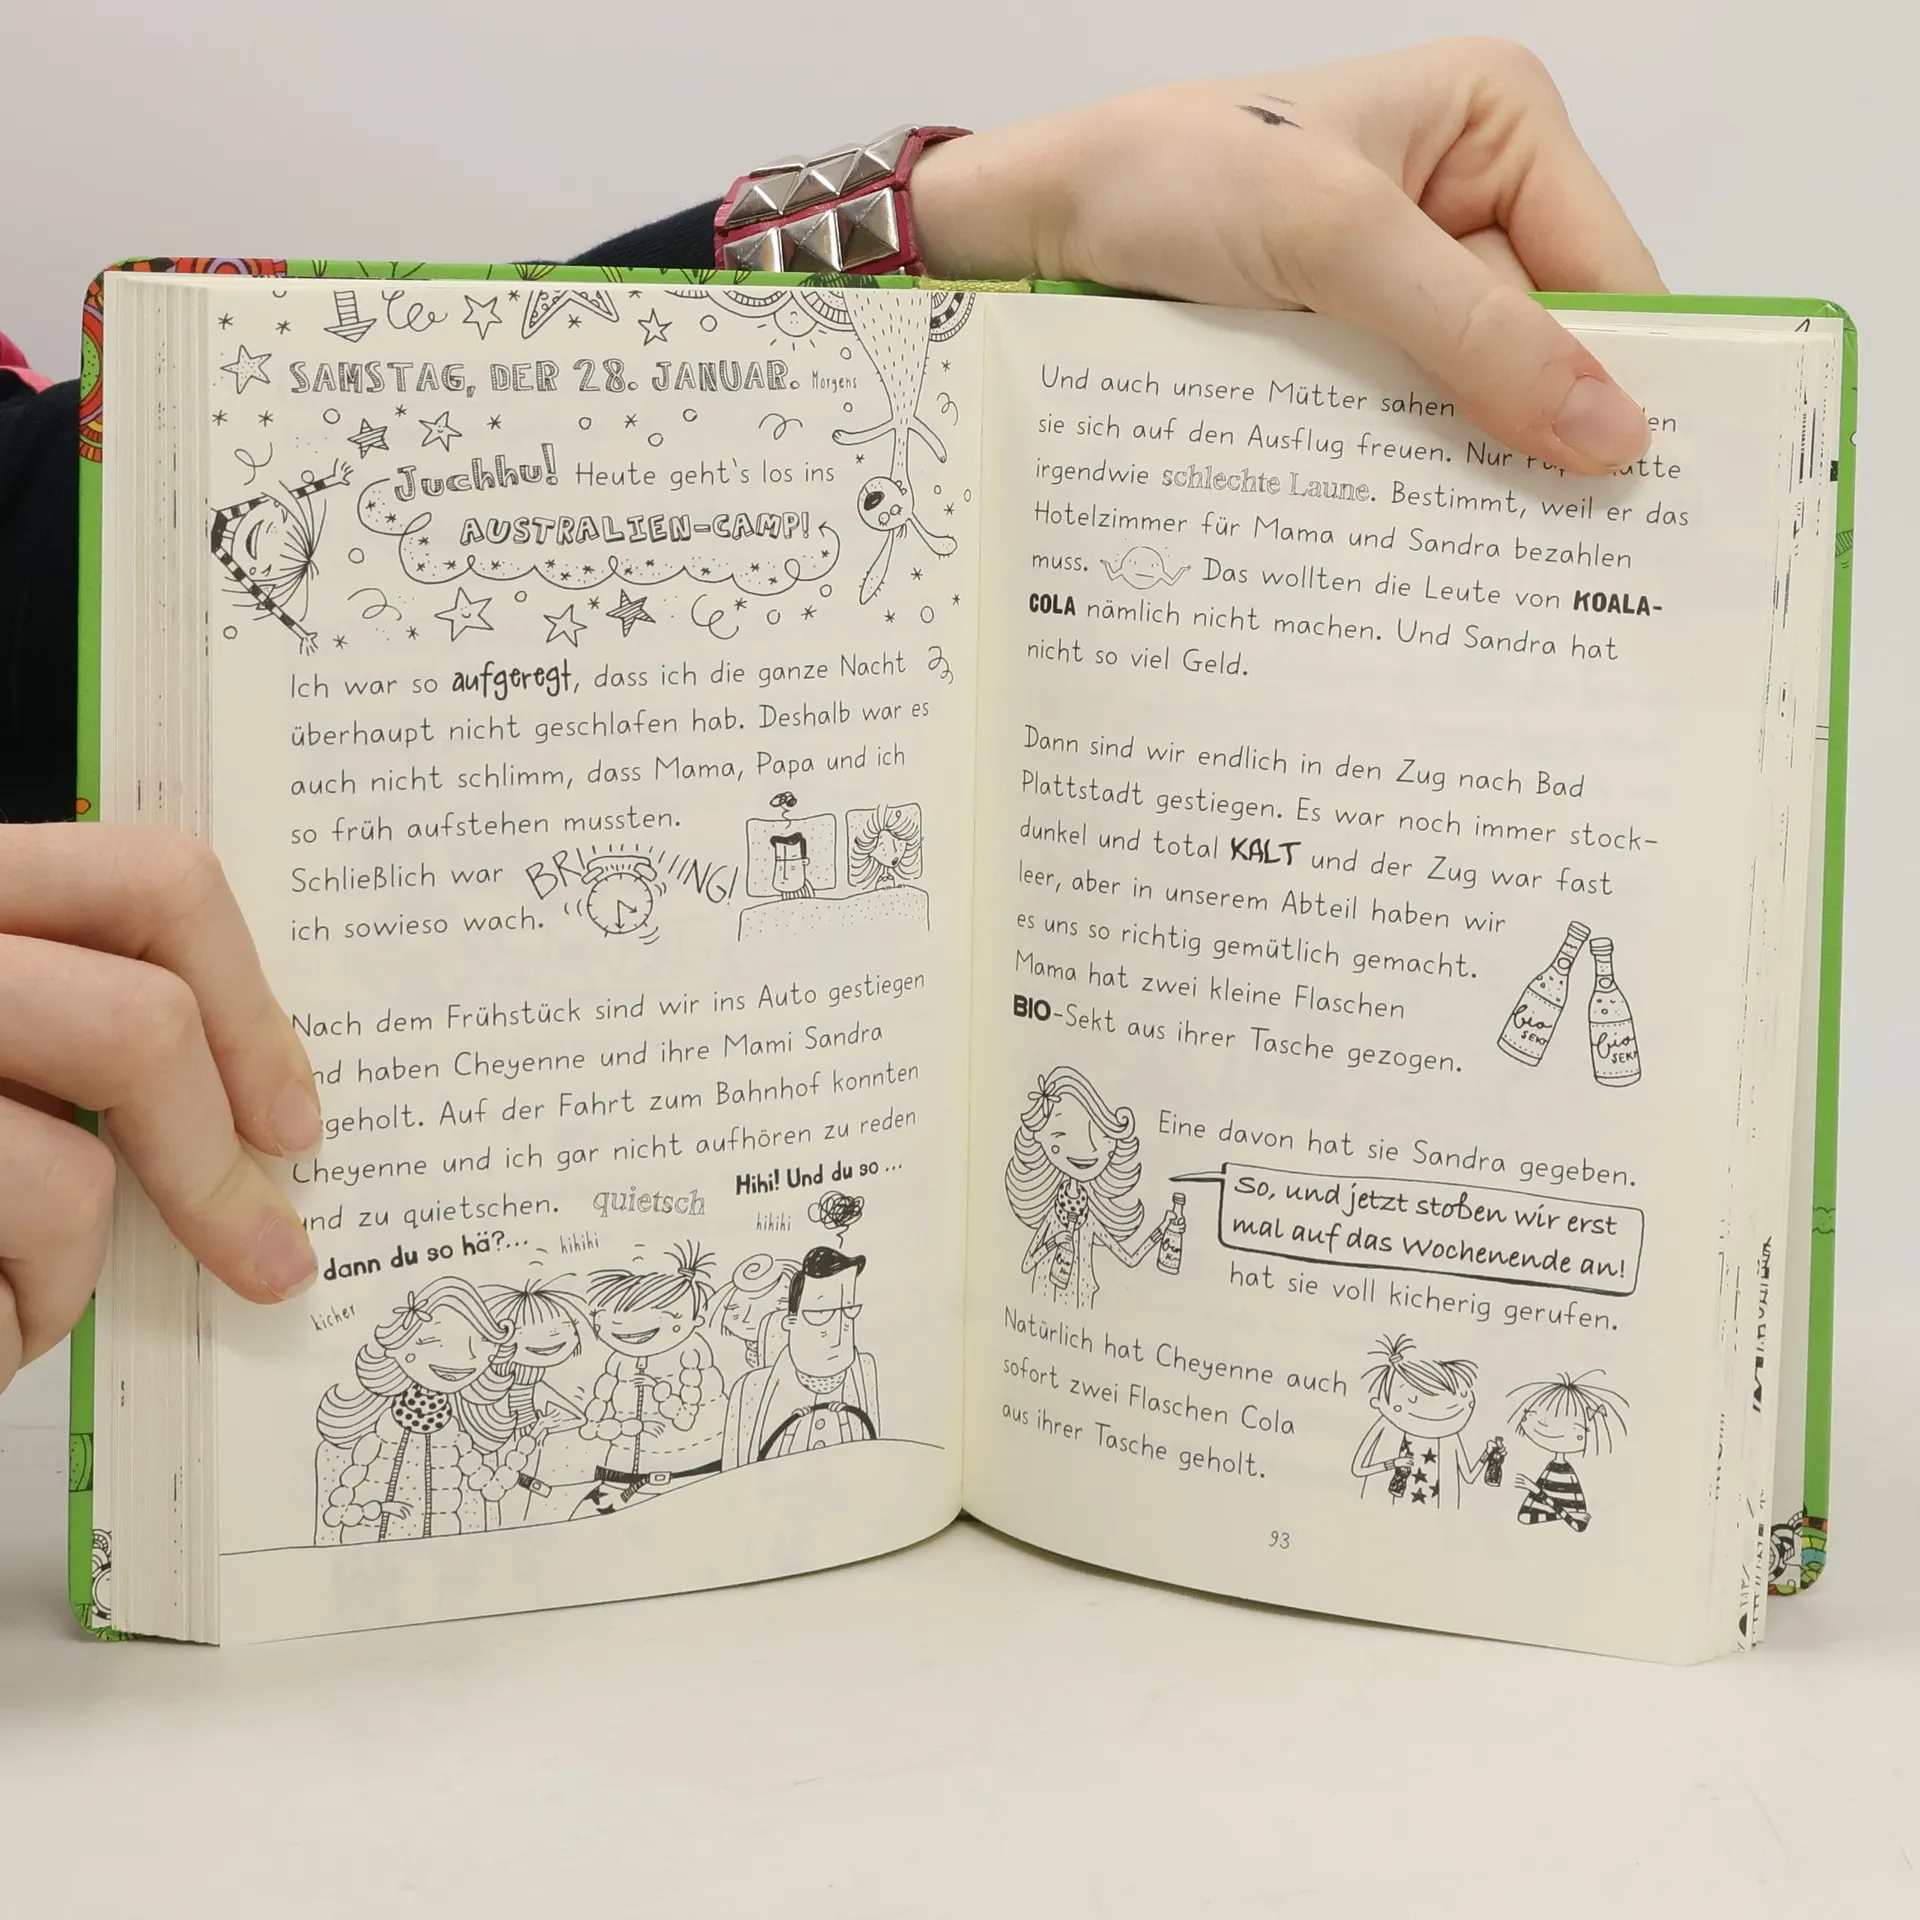 SAMSTAG, DER 28. JANUAR. Morgens
Juchhu! Heute geht's los ins
AUSTRALIEN-CAMP!
Ich war so aufgeregt, dass ich die ganze Nacht
überhaupt nicht geschlafen hab. Deshalb war es
auch nicht schlimm, dass Mama, Papa und ich
so früh aufstehen mussten.
Schließlich war
BRIIIING!
ich sowieso wach.
Nach dem Frühstück sind wir ins Auto gestiegen
haben Cheyenne und ihre Mami Sandra
geholt. Auf der Fahrt zum Bahnhof konnten
Cheyenne und ich gar nicht aufhören zu reden
und zu quietschen. quietsch
Hihi! Und du so ...
hihihi
dann du so hä?...
hihihi
kicher
Und auch unsere Mütter sahen
sie sich auf den Ausflug freuen. Nur
irgendwie schlechte Laune. Bestimmt, weil er das
Hotelzimmer für Mama und Sandra bezahlen
muss. Das wollten die Leute von KOALA-
COLA nämlich nicht machen. Und Sandra hat
nicht so viel Geld.
Dann sind wir endlich in den Zug nach Bad
Plattstadt gestiegen. Es war noch immer stock-
dunkel und total KALT und der Zug war fast
leer, aber in unserem Abteil haben wir
es uns so richtig gemütlich gemacht.
Mama hat zwei kleine Flaschen
BIO-Sekt aus ihrer Tasche gezogen.
bio
SEKT
bio
SEKT
Eine davon hat sie Sandra gegeben.
So, und jetzt stoßen wir erst
mal auf das Wochenende an!
hat sie voll kicherig gerufen.
Natürlich hat Cheyenne auch
sofort zwei Flaschen Cola
aus ihrer Tasche geholt.
93